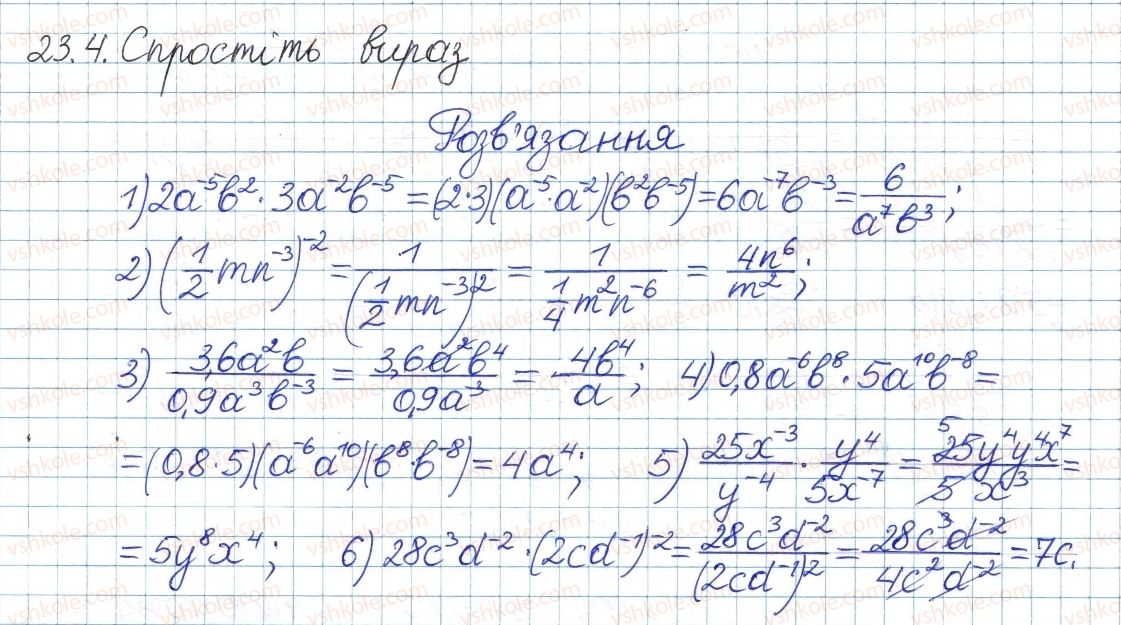 23.4. Спростіть вираз
Розв'язання
1) 2a⁻⁵b²·3a⁻²b⁻⁵=(2·3)(a⁻⁵·a⁻²)(b²b⁻⁵)=6a⁻⁷b⁻³=6/(a⁷b³);
2) (1/2 mn⁻³)⁻²=1/(1/2 mn⁻³)²=1/(1/4 m²n⁻⁶)=4n⁶/m²;
3) 3,6a²b/(0,9a³b⁻³)=3,6a²b⁴/(0,9a⁻³)=4b⁴/a; 4) 0,8a⁻⁶b⁸·5a¹⁰b⁻⁸=
=(0,8·5)(a⁻⁶a¹⁰)(b⁸·b⁻⁸)=4a⁴; 5) 25x⁻³/y⁻⁴·y⁴/(5x⁻⁷)=5 25y⁴y⁴x⁷/(5x³)=
=5y⁸x⁴; 6) 28c³d⁻²·(2cd⁻¹)⁻²=28c³d⁻²/(2cd⁻¹)²=28c³d⁻²/(4c²d⁻²)=7c.
vshkole.com